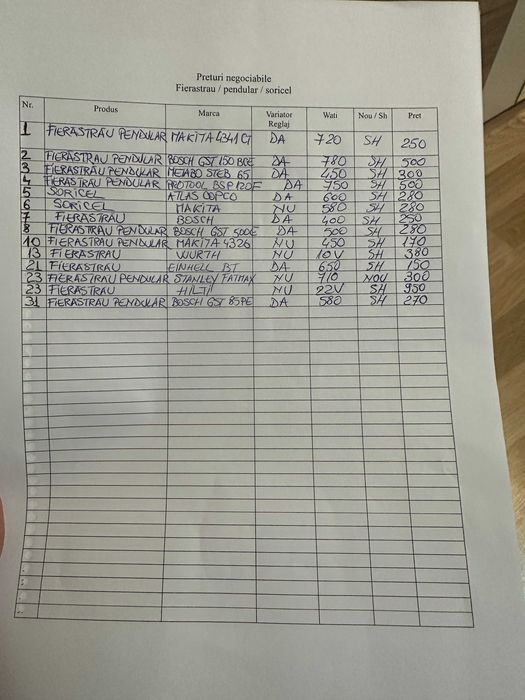 Preturi negociabile
Fierastrau / pendular / soricel
Nr. Produs Marca Variator Reglaj Wati Nou / Sh Pret
1 FIERASTRAU PENDULAR MAKITA 4341 CT DA 720 SH 250
2 FIERASTRAU PENDULAR BOSCH GST 150 BCE DA 780 SH 500
3 FIERASTRAU PENDULAR METABO STEB 65 DA 450 SH 300
4 FIERASTRAU PENDULAR PROTOOL BSP 120F DA 750 SH 500
5 SORICEL ATLAS COPCO DA 600 SH 280
6 SORICEL MAKITA NU 580 SH 280
7 FIERASTRAU BOSCH DA 400 SH 250
8 FIERASTRAU PENDULAR BOSCH GST 500E DA 500 SH 280
10 FIERASTRAU PENDULAR MAKITA 4326 NU 450 SH 170
13 FIERASTRAU WURTH NU 10V SH 380
21 FIERASTRAU EINHELL BT DA 650 SH 150
23 FIERASTRAU PENDULAR STANLEY FATMAX NU 710 NOU 300
23 FIERASTRAU HILTI NU 22V SH 950
31 FIERASTRAU PENDULAR BOSCH GST 85PE DA 580 SH 270